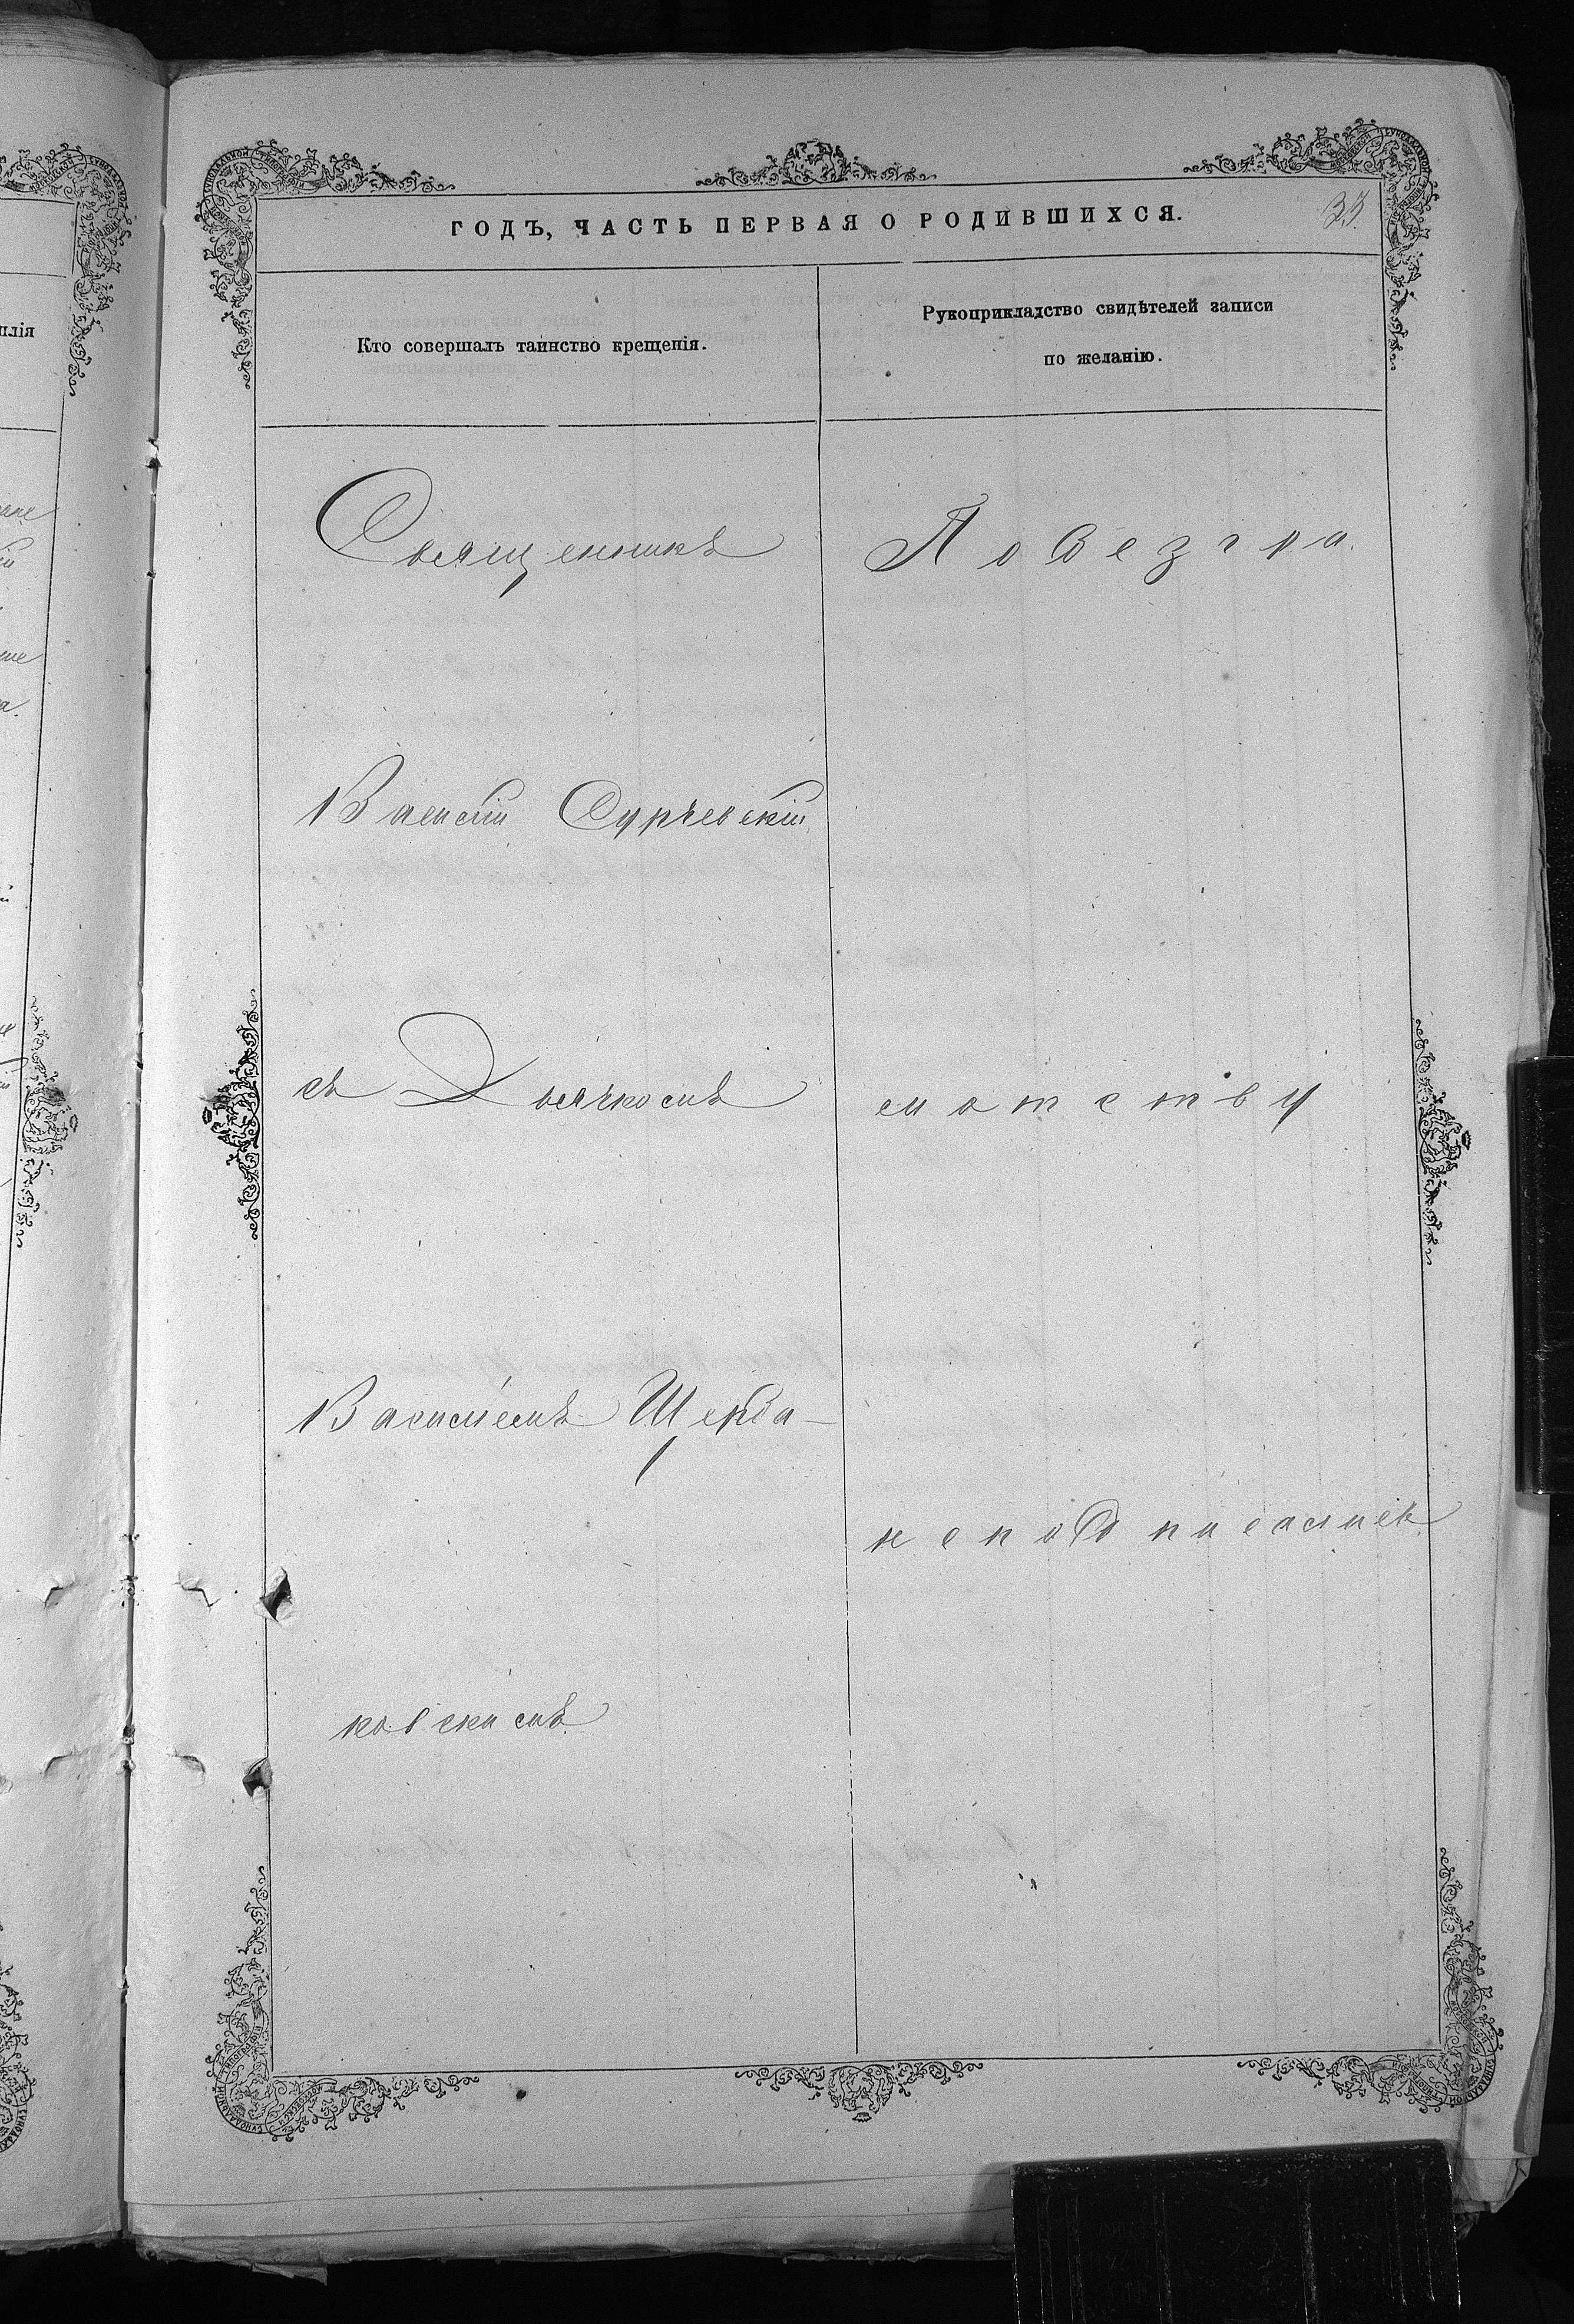 ГОДЪ, ЧАСТЬ ПЕРВАЯ О РОДИВШИХСЯ.
Кто совершалъ таинство крещенія.
Рукоприкладство свидѣтелей записи
по желанію.
Священникъ
Василій Сурчевскій
съ Дьячкомъ
Василіемъ Щерба-
ковскимъ.
По безгра
мотству
не подписались.